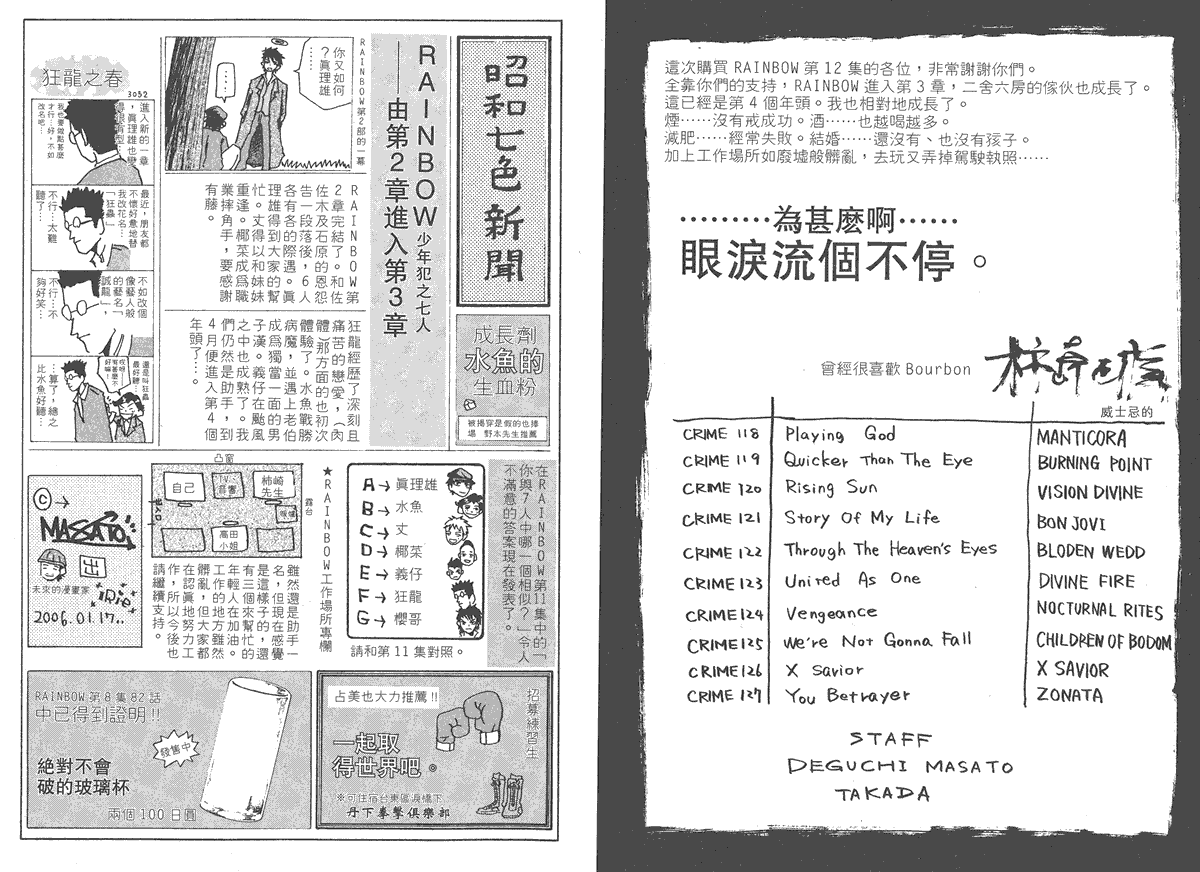 昭和七色新聞
成長劑
水魚的
生血粉
被揭穿是假的也捧
場 野本先生推薦
RAINBOW少年犯之七人
──由第2章進入第3章
RAINBOW第2部的一幕
你又如何
？眞理雄
……
……
RAINBOW第
2章完結了。和佐
佐木及石原的恩怨
告一段落後，6人
各有各的際遇。眞
理雄得到大家的幫
忙。丈得以和妹妹
重逢。椰菜成爲職
業摔角手，要感謝
有藤。
狂龍經歷了深刻且
痛苦的戀愛，（肉
體）那方面的也初次
體驗了。水魚戰勝
病魔，並遇上老伯
成爲獨當一面的男
子漢。義仔在颱風
之中也成熟了。我
們仍然是助手，到
4月便進入第4個
年頭了…。
狂龍之春
3052
進入新的一章
，眞理雄也變
得很有型…
我也要做點甚麼
才行…好，不如
改名吧…
最近，朋友都
不懷好意地替
我改花名…
「狂蟲」
不行…太難
聽了…
不如改個
像藝人般
的藝名「
誠龍」，
不行…不
夠好笑…
還是叫狂蟲
最好聽…
哎呀，
有甚麼不
好嘛！
…算了，總之
比水魚好聽…
在RAINBOW第11集中的「
你與7人中哪一個相似？」令人
不滿意的答案現在發表了。
A→眞理雄
B→水魚
C→丈
D→椰菜
E→義仔
F→狂龍
G→櫻哥
請和第11集對照。
★RAINBOW工作場所專欄
凸窗
自己
TV.
音響
柿崎
先生
露台
暖爐
出入口
高田
小姐
雖然還是助手一
名，但現在感覺
是這樣子的，還
有三個來幫忙的
年輕人在加油。
工作的地方雖然
髒亂，但大家都
在認眞地努力工
作，所以今後也
請繼續支持。
©→
MASATO
出
未來的漫畫家
2006.01.17..
RAINBOW第8集82話
中已得到證明!!
發售中
絕對不會
破的玻璃杯
兩個100日圓
占美也大力推薦!!
招募練習生
一起取
得世界吧。
※可住宿台東區淚橋下
丹下拳擊俱樂部
這次購買RAINBOW第12集的各位，非常謝謝你們。
全靠你們的支持，RAINBOW進入第3章，二舍六房的傢伙也成長了。
這已經是第4個年頭。我也相對地成長了。
煙……沒有戒成功。酒……也越喝越多。
減肥……經常失敗。結婚……還沒有、也沒有孩子。
加上工作場所如廢墟般髒亂，去玩又弄掉駕駛執照……
………為甚麼啊……
眼淚流個不停。
曾經很喜歡Bourbon
威士忌的
CRIME 118 Playing God MANTICORA
CRIME 119 Quicker Than The Eye BURNING POINT
CRIME 120 Rising Sun VISION DIVINE
CRIME 121 Story Of My Life BON JOVI
CRIME 122 Through The Heaven's Eyes BLODEN WEDD
CRIME 123 United As One DIVINE FIRE
CRIME 124 Vengeance NOCTURNAL RITES
CRIME 125 We're Not Gonna Fall CHILDREN OF BODOM
CRIME 126 X Savior X SAVIOR
CRIME 127 You Betrayer ZONATA
STAFF
DEGUCHI MASATO
TAKADA